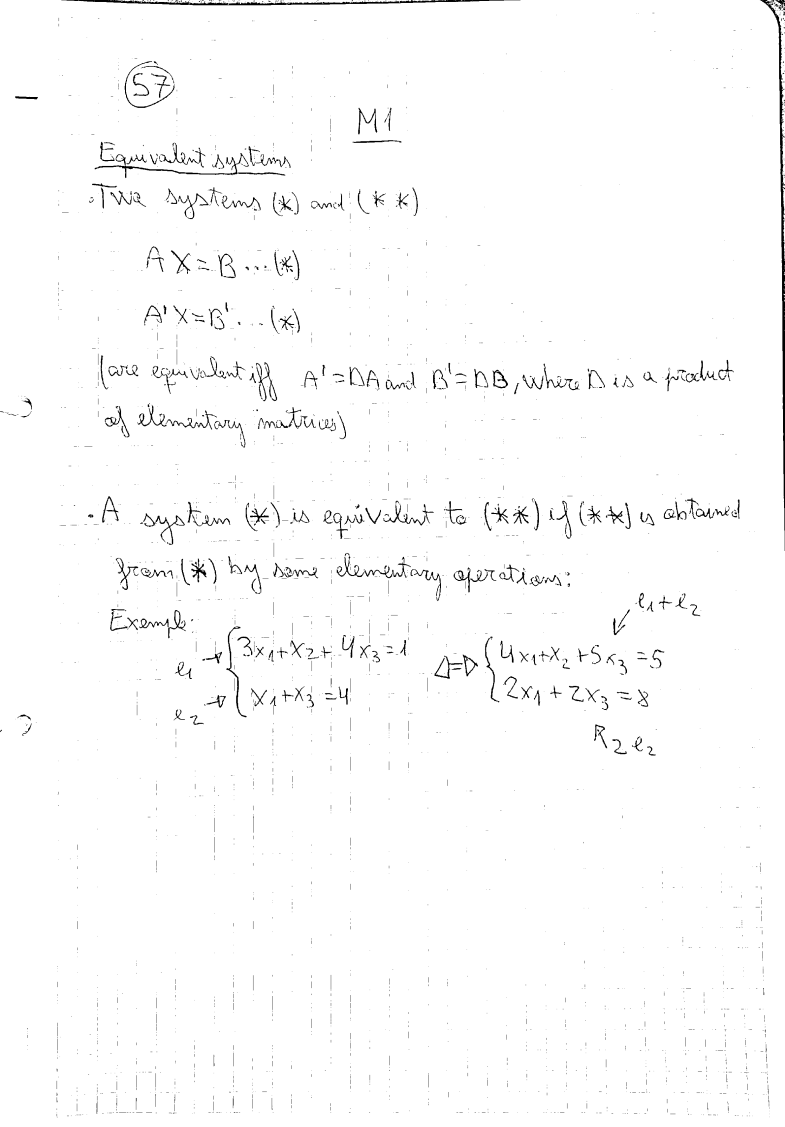 57
M1
Equivalent systems
. Two systems (*) and (* *)
AX=B...(*)
A'X=B'...(*)
(are equivalent iff A'=DA and B'=DB, where D is a product
of elementary matrices)
. A system (*) is equivalent to (**) if (**) is obtained
from (*) by some elementary operations:
Exemple: l1+l2
l1 → {3x1+x2+4x3=1 <=> {4x1+x2+5x3=5
l2 → x1+x3=4 2x1+2x3=8
2l2